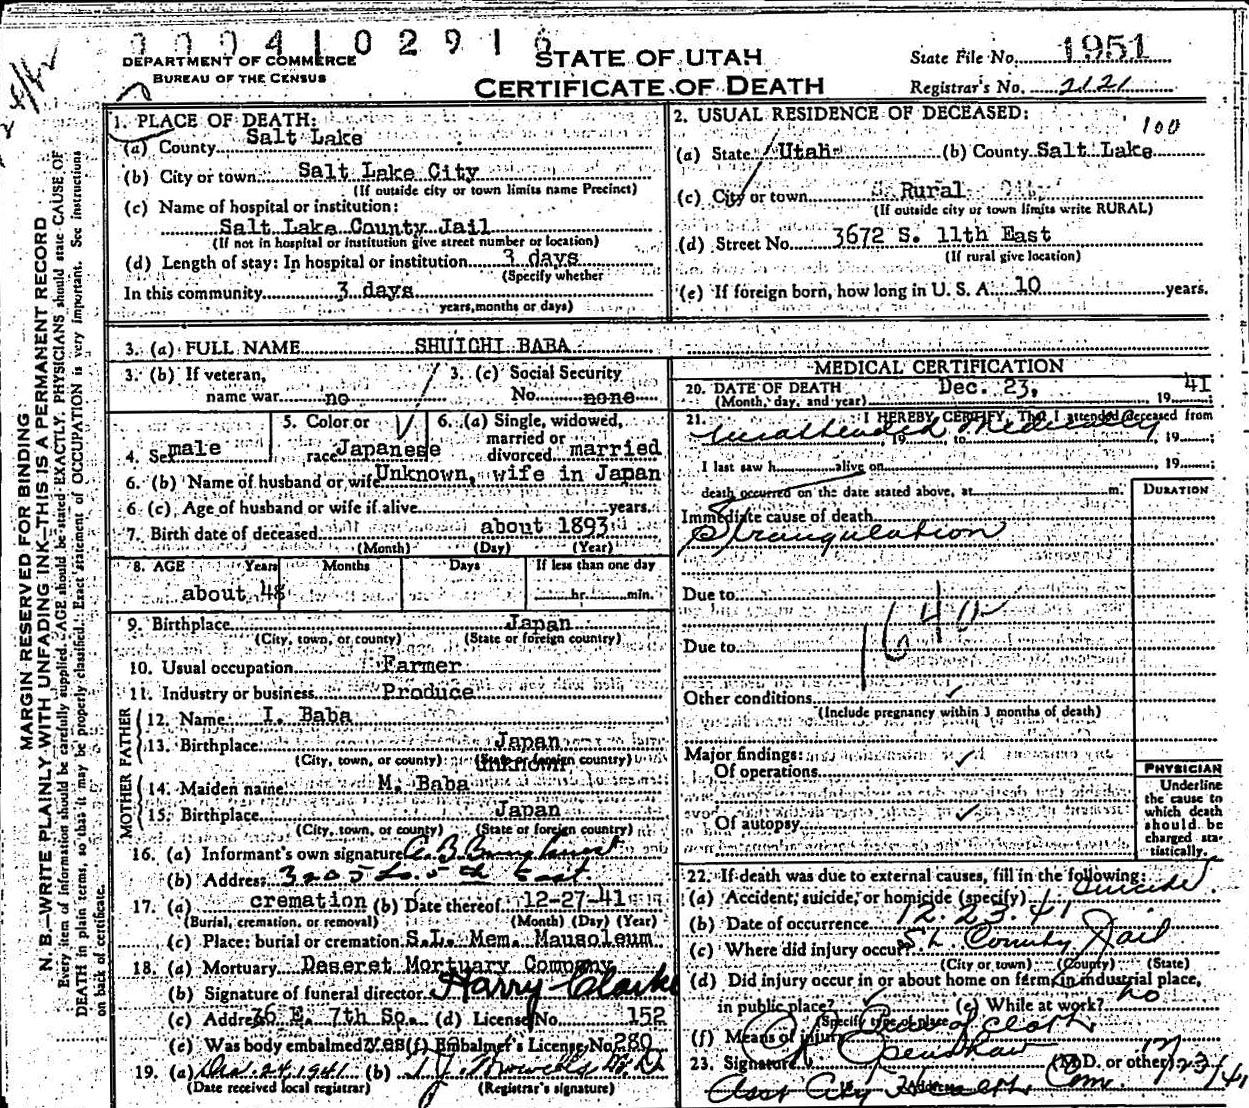 0 0 0 4 1 0 2 9 1 6
DEPARTMENT OF COMMERCE
BUREAU OF THE CENSUS
STATE OF UTAH
CERTIFICATE OF DEATH
State File No. 1951
Registrar's No. 2121
MARGIN RESERVED FOR BINDING
N. B.—WRITE PLAINLY WITH UNFADING INK—THIS IS A PERMANENT RECORD
Every item of information should be carefully supplied. AGE should be stated EXACTLY. PHYSICIANS should state CAUSE OF
DEATH in plain terms, so that it may be properly classified. Exact statement of OCCUPATION is very important. See instructions
on back of certificate.
1. PLACE OF DEATH:
(a) County Salt Lake
(b) City or town Salt Lake City
(If outside city or town limits name Precinct)
(c) Name of hospital or institution:
Salt Lake County Jail
(If not in hospital or institution give street number or location)
(d) Length of stay: In hospital or institution 3 days
(Specify whether
In this community 3 days
years, months or days)
2. USUAL RESIDENCE OF DECEASED:
100
(a) State Utah (b) County Salt Lake
(c) City or town Rural
(If outside city or town limits write RURAL)
(d) Street No. 3672 S. 11th East
(If rural give location)
(e) If foreign born, how long in U. S. A. 10 years.
3. (a) FULL NAME SHUICHI BABA
3. (b) If veteran, name war no
3. (c) Social Security No. none
4. Sex male
5. Color or race Japanese
6. (a) Single, widowed, married or divorced married
6. (b) Name of husband or wife Unknown, wife in Japan
6 (c) Age of husband or wife if alive years.
7. Birth date of deceased about 1893
(Month) (Day) (Year)
8. AGE Years Months Days If less than one day
about 48 hr. min.
9. Birthplace Japan
(City, town, or county) (State or foreign country)
10. Usual occupation Farmer
11. Industry or business Produce
FATHER
12. Name I. Baba
13. Birthplace Japan
(City, town, or county) (State or foreign country)
unknown
MOTHER
14. Maiden name M. Baba
15. Birthplace Japan
(City, town, or county) (State or foreign country)
16. (a) Informant's own signature
(b) Address 3205 So. 5th East
17. (a) cremation (b) Date thereof 12-27-41
(Burial, cremation, or removal) (Month) (Day) (Year)
(c) Place: burial or cremation S.L. Mem. Mausoleum
18. (a) Mortuary Deseret Mortuary Company
(b) Signature of funeral director Harry Clarke
(c) Address 36 E. 7th So. (d) License No. 152
(e) Was body embalmed yes (f) Embalmer's License No. 280
19. (a) Dec. 24, 1941 (b)
(Date received local registrar) (Registrar's signature)
MEDICAL CERTIFICATION
20. DATE OF DEATH Dec. 23, 1941
(Month, day, and year)
21. I HEREBY CERTIFY, That I attended deceased from
Unattended Medically 19 to 19
I last saw h alive on 19
death occurred on the date stated above, at m.
DURATION
Immediate cause of death
Strangulation
Due to
Due to
Other conditions
(Include pregnancy within 3 months of death)
Major findings:
Of operations
Of autopsy
PHYSICIAN
Underline
the cause to
which death
should be
charged sta-
tistically.
22. If death was due to external causes, fill in the following:
(a) Accident, suicide, or homicide (specify) Suicide
(b) Date of occurrence 12.23.41
(c) Where did injury occur? S.L. County Jail
(City or town) (County) (State)
(d) Did injury occur in or about home on farm, in industrial place,
in public place? (e) While at work? no
(Specify type of place)
(f) Means of injury of cloth
23. Signature Openshaw (M.D. or other) 12/23/41
Address Asst City Health Com.